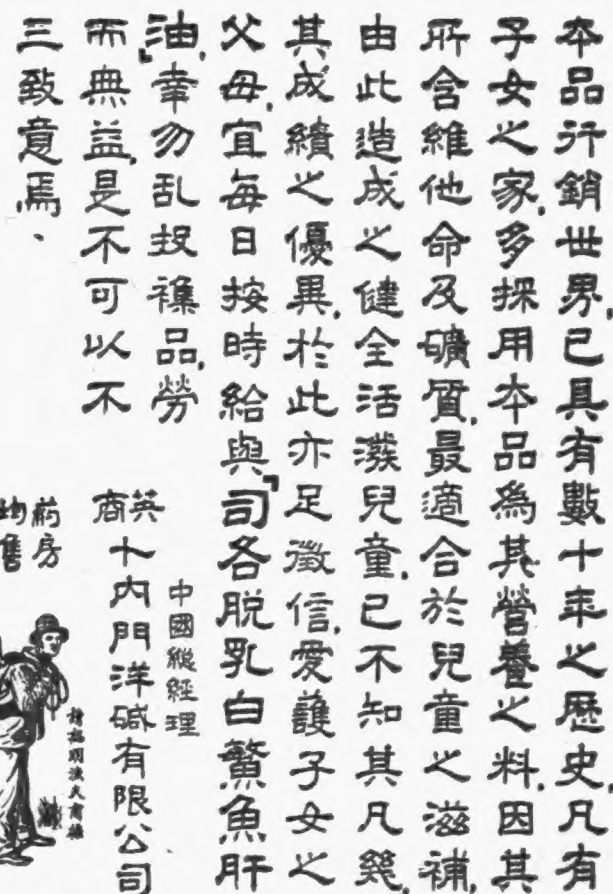 本品行銷世界,已具有數十年之歷史,凡有
子女之家,多採用本品為其營養之料,因其
所含維他命及礦質,最適合於兒童之滋補,
由此造成之健全活潑兒童,已不知其凡幾,
其成績之優異,於此亦足徵信,愛護子女之
父母,宜每日按時給與「司各脫乳白鰵魚肝
油」,幸勿乱投襍品,勞
而無益,是不可以不
三致意焉、
中國總經理
英商卜内門洋碱有限公司
葯房
均售
請認明漁夫商標